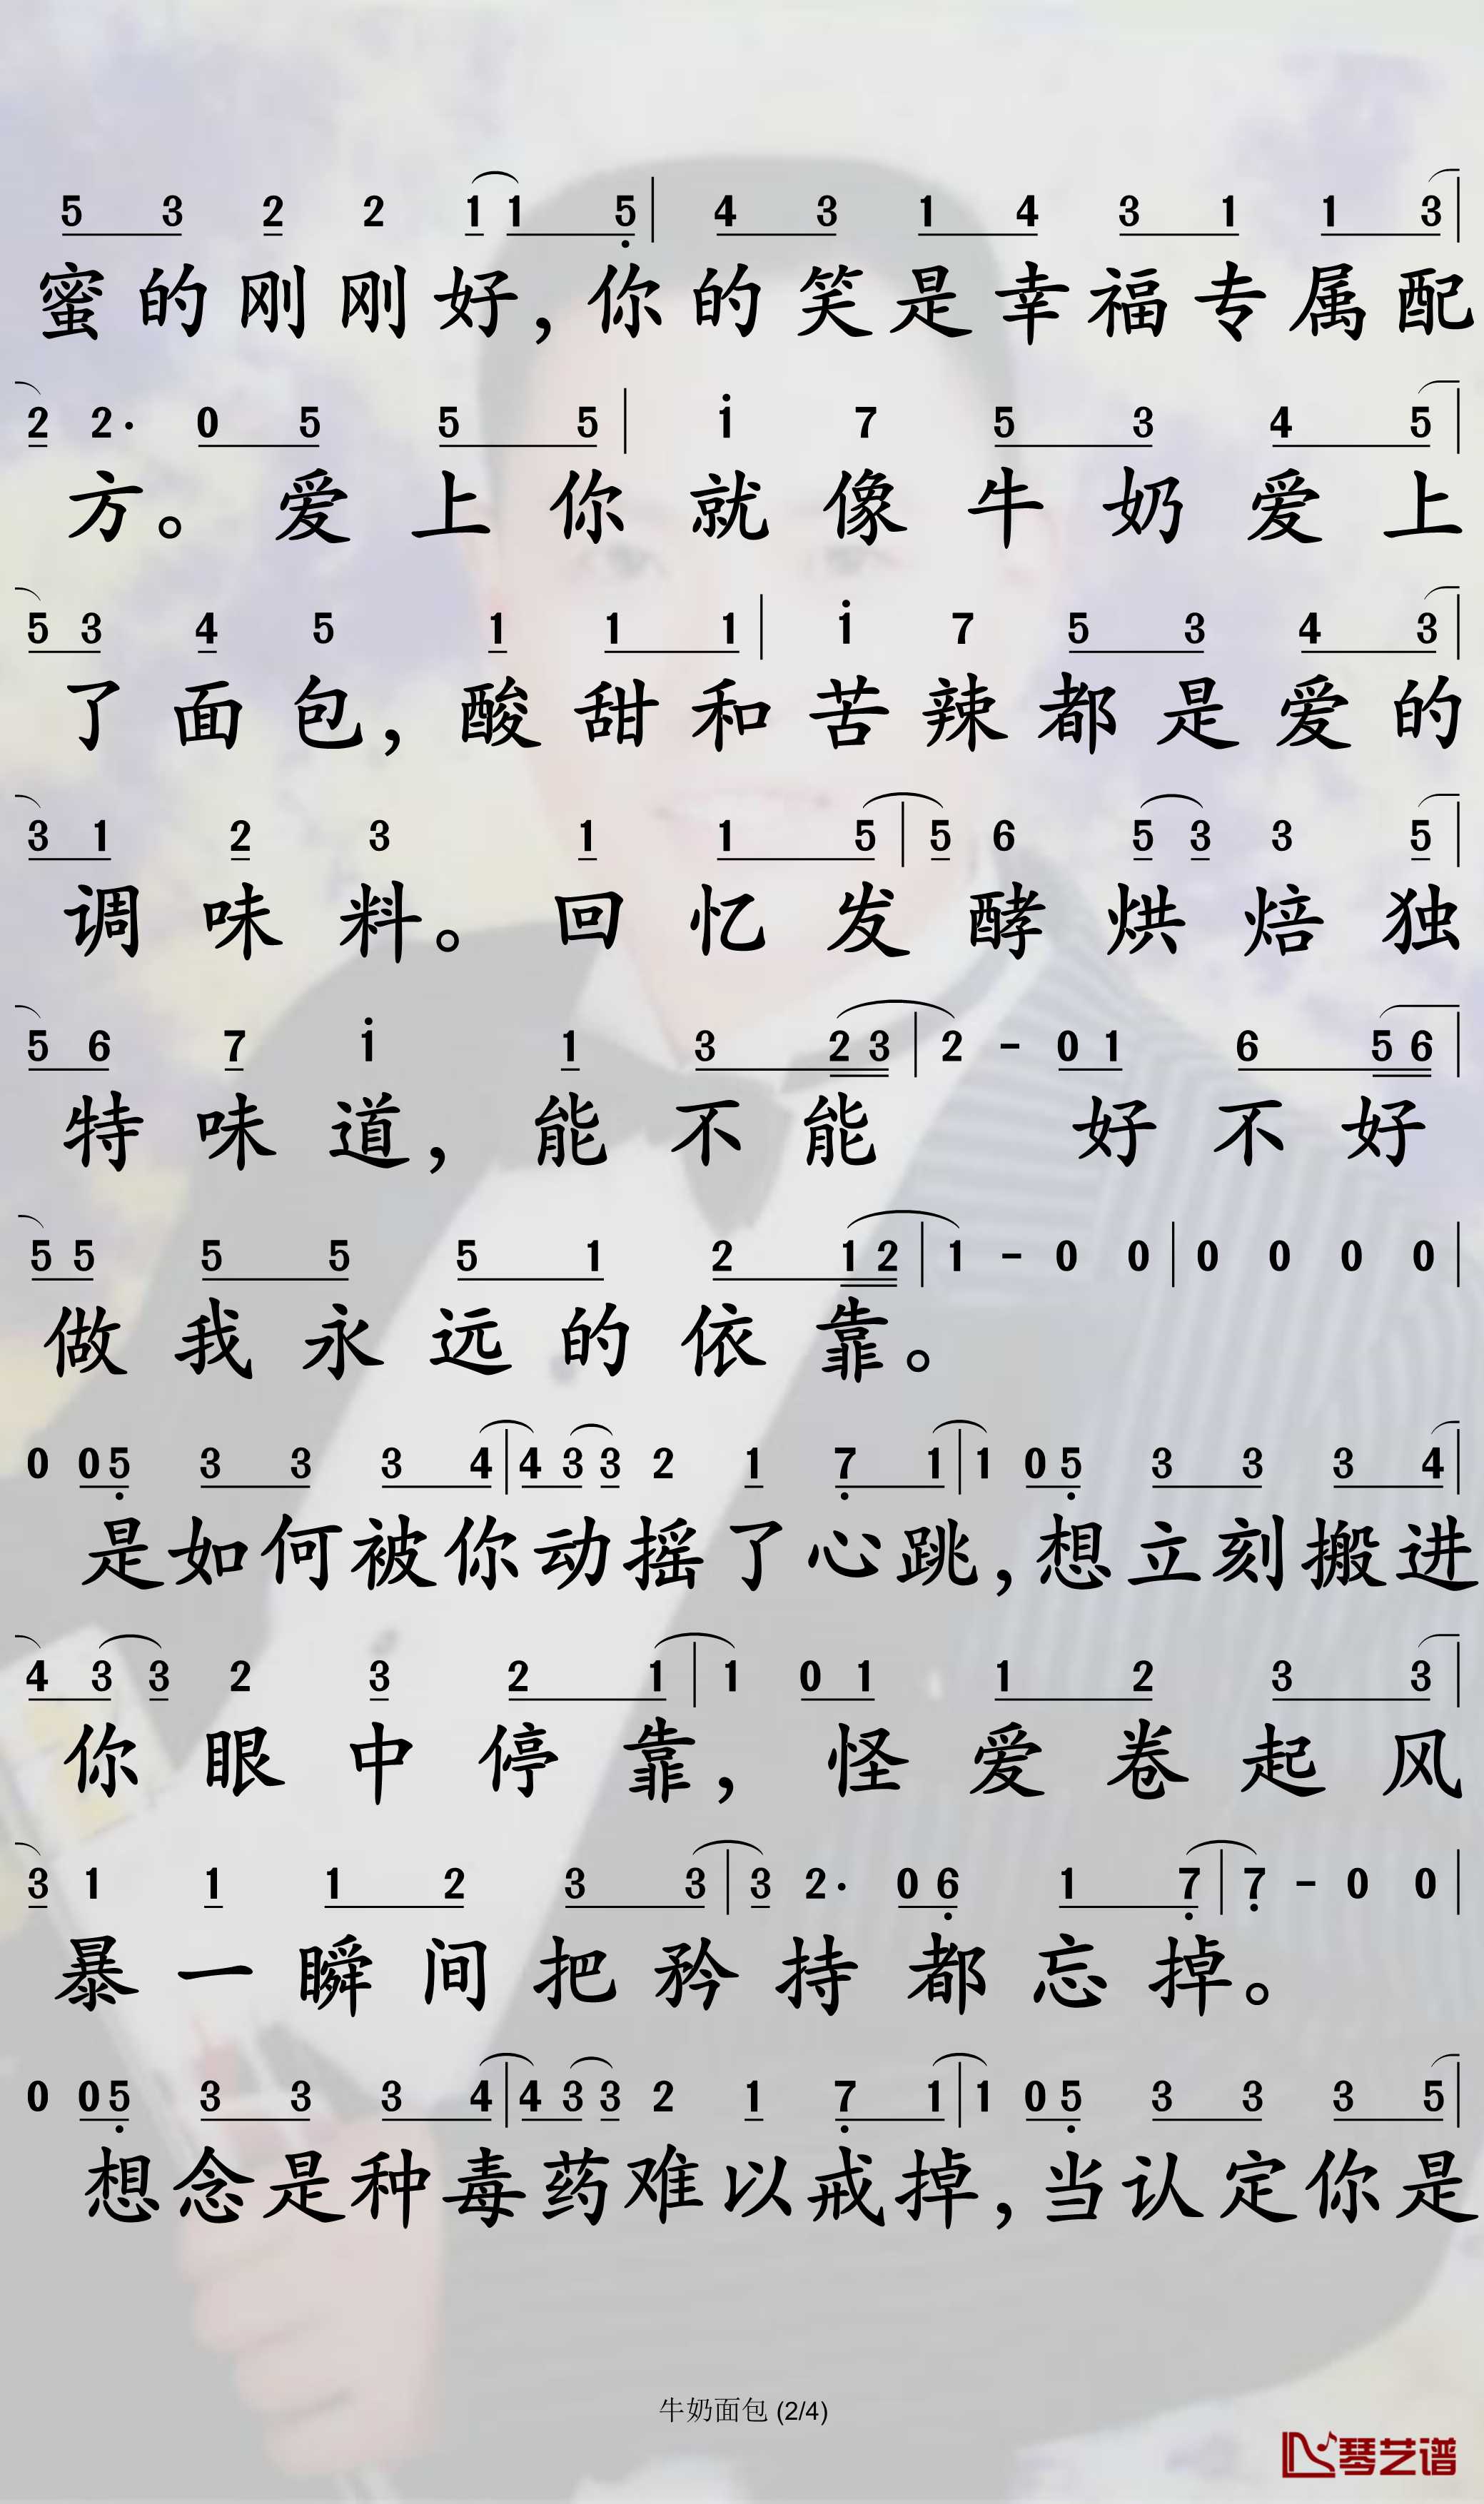 5 3 2 2 1 1 5 | 4 3 1 4 3 1 1 3 |
蜜的刚刚好，你的笑是幸福专属配
2 2· 0 5 5 5 | i 7 5 3 4 5 |
方。爱上你就像牛奶爱上
5 3 4 5 1 1 1 | i 7 5 3 4 3 |
了面包，酸甜和苦辣都是爱的
3 1 2 3 1 1 5 | 5 6 5 3 3 5 |
调味料。回忆发酵烘焙独
5 6 7 i 1 3 2 3 | 2 - 0 1 6 5 6 |
特味道，能不能 好不好
5 5 5 5 5 1 2 1 2 | 1 - 0 0 | 0 0 0 0 |
做我永远的依靠。
0 0 5 3 3 3 4 | 4 3 3 2 1 7 1 | 1 0 5 3 3 3 4 |
是如何被你动摇了心跳，想立刻搬进
4 3 3 2 3 2 1 | 1 0 1 1 2 3 3 |
你眼中停靠，怪爱卷起风
3 1 1 1 2 3 3 | 3 2· 0 6 1 7 | 7 - 0 0 |
暴一瞬间把矜持都忘掉。
0 0 5 3 3 3 4 | 4 3 3 2 1 7 1 | 1 0 5 3 3 3 5 |
想念是种毒药难以戒掉，当认定你是
牛奶面包 (2/4)
琴艺谱